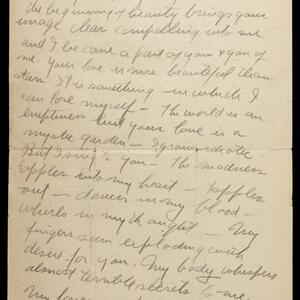 the beginning & beauty brings your
image clear compelling into me
and I become a part of you & you of
me. Your love is more beautiful than
stars. It is something in which I
can lose myself — The world is an
emptiness but your love is a
mystic garden — I grow idiotic
But I sing to you — The madness
topples into my heart — topples
out — dances in my blood —
whirls in my thought — My
fingers seem exploding with
desire for you. My body whispers
almost terrible secrets to me.
My